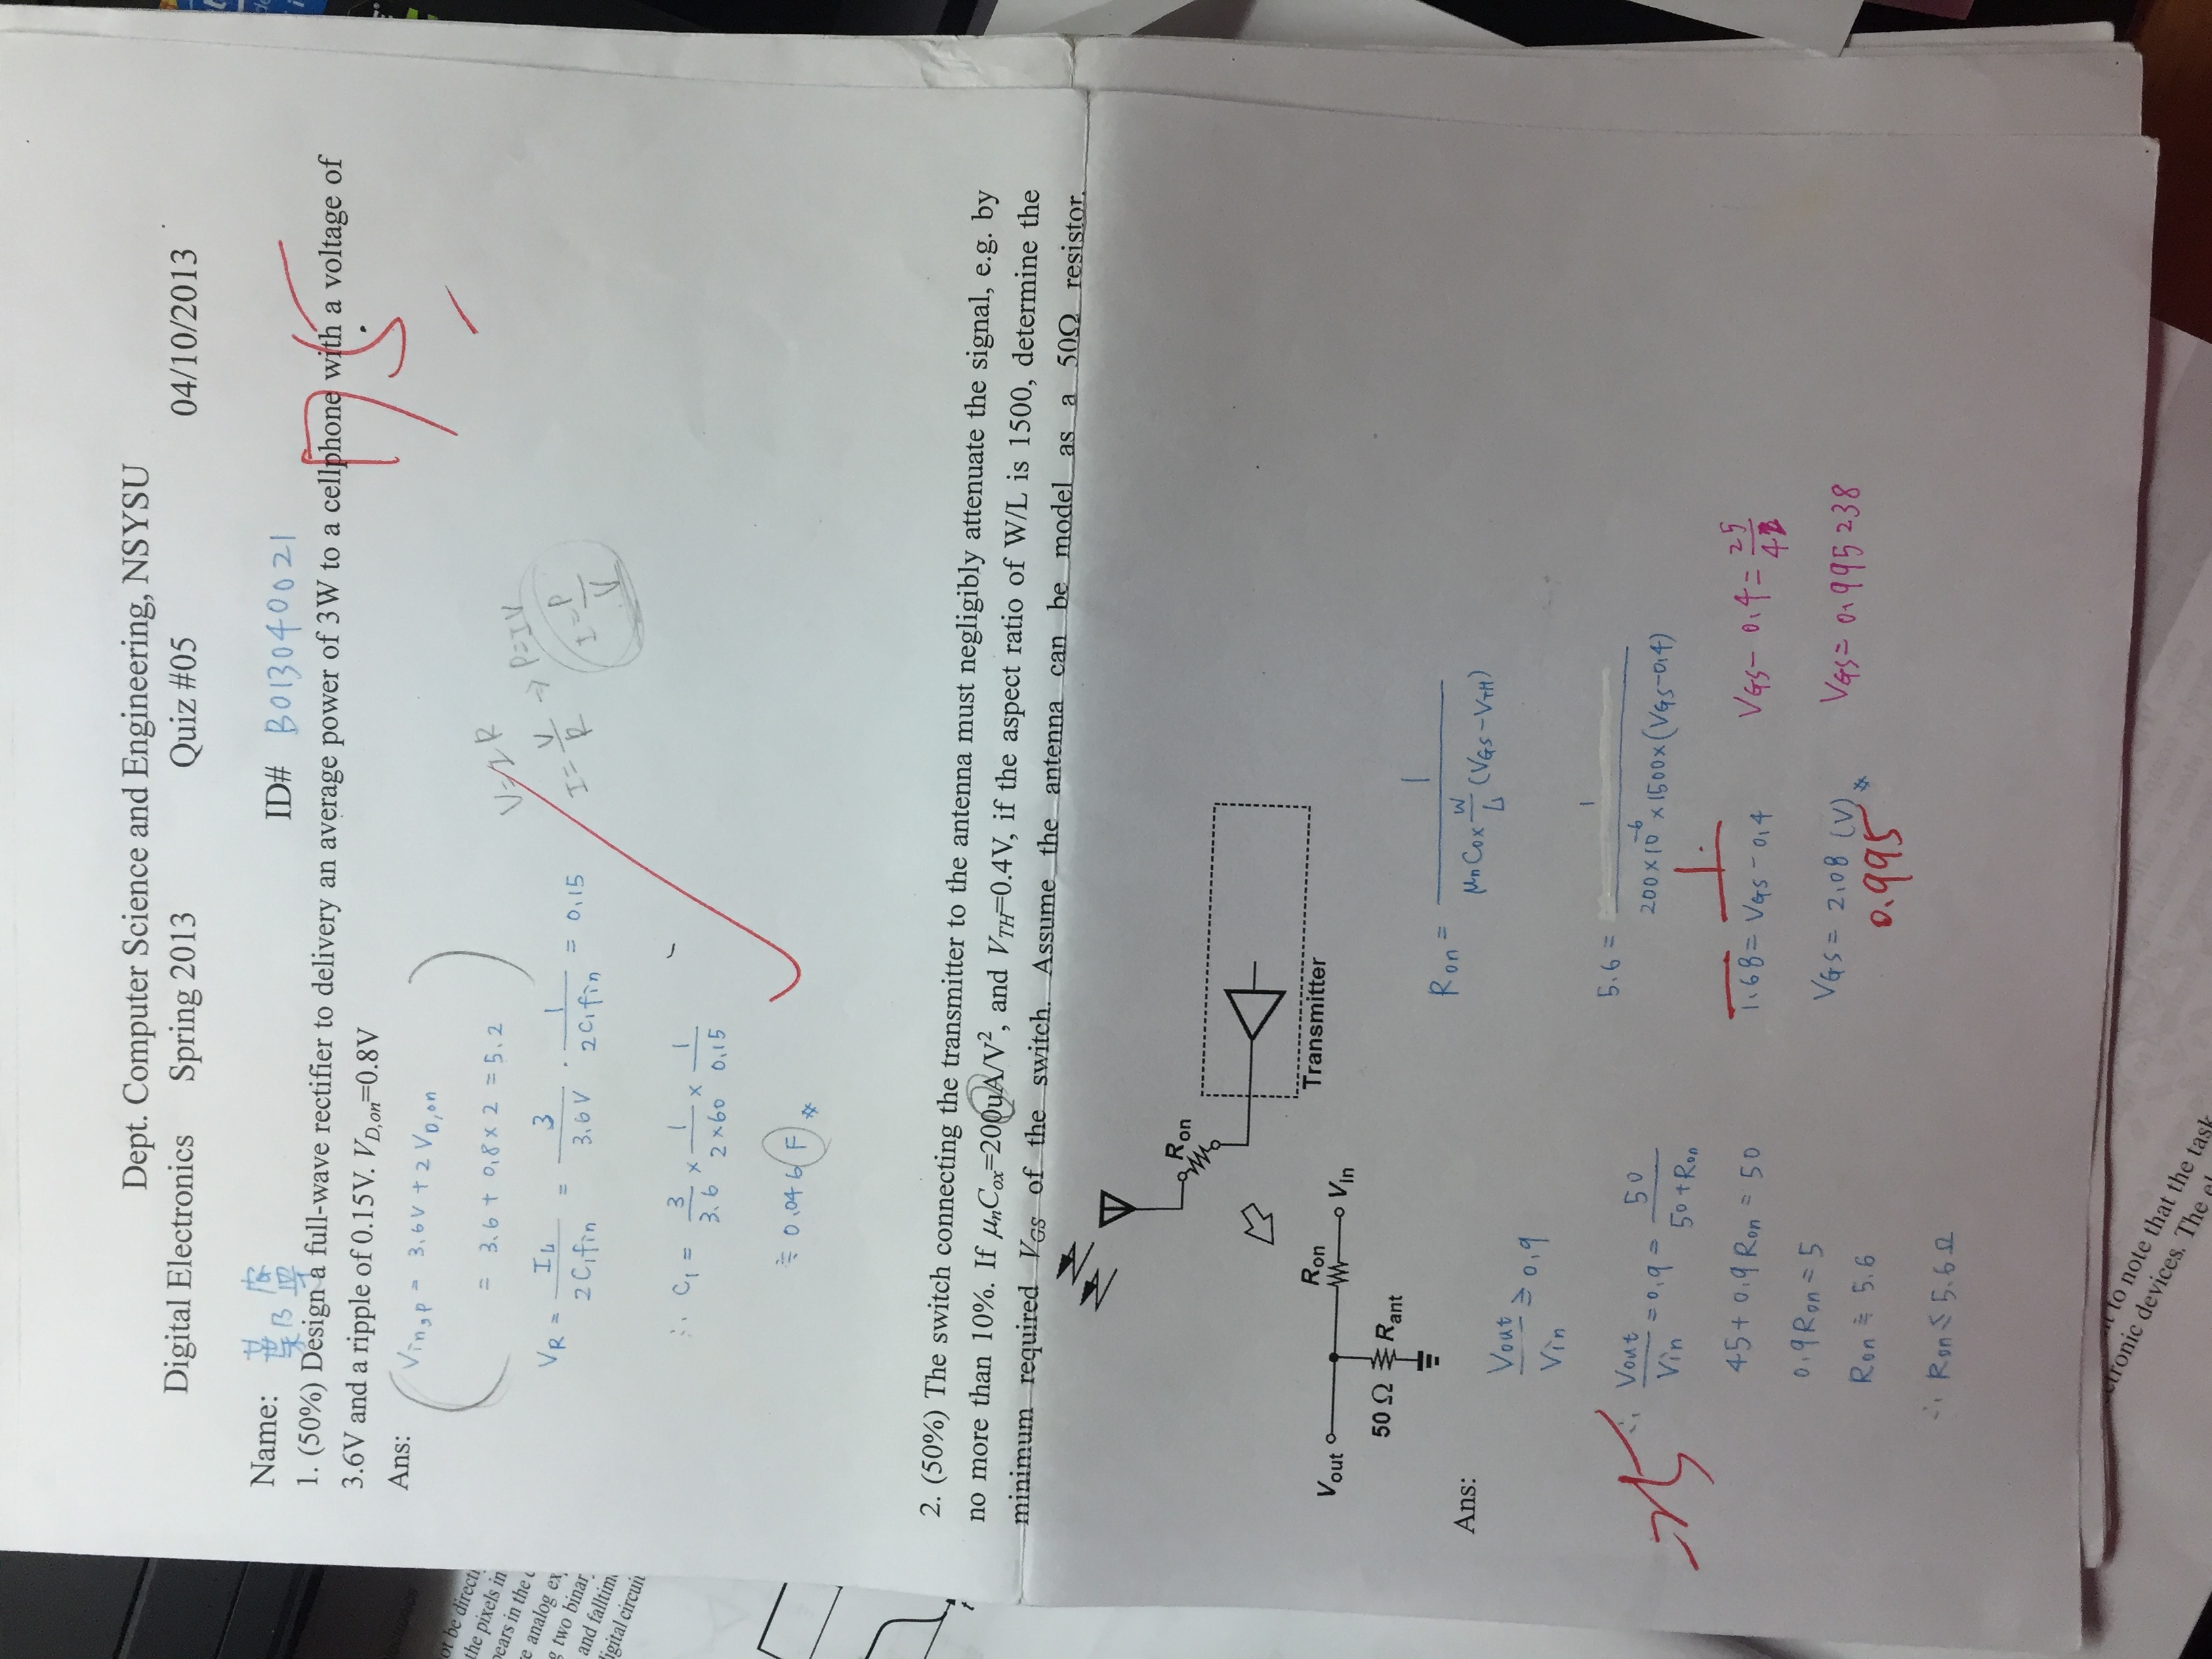 Dept. Computer Science and Engineering, NSYSU
Digital Electronics Spring 2013 Quiz #05 04/10/2013
Name: ID# B013040021
75
1. (50%) Design a full-wave rectifier to delivery an average power of 3W to a cellphone with a voltage of
3.6V and a ripple of 0.15V. VD,on=0.8V
Ans:
Vin,p = 3.6V + 2 VD,on
= 3.6 + 0.8 × 2 = 5.2
VR = IL / 2C1fin = 3 / 3.6V · 1 / 2C1fin = 0.15
V=IR
I = V/R → P=IV
I = P/V
∴ C1 = 3/3.6 × 1/2×60 × 1/0.15
≒ 0.046 F
2. (50%) The switch connecting the transmitter to the antenna must negligibly attenuate the signal, e.g. by
no more than 10%. If μnCox=200uA/V², and VTH=0.4V, if the aspect ratio of W/L is 1500, determine the
minimum required VGS of the switch. Assume the antenna can be model as a 50Ω resistor.
Ron
Transmitter
Vout Ron Vin
50 Ω Rant
Ans:
Vout/Vin ≥ 0.9
∴ Vout/Vin = 0.9 = 50 / 50+Ron
45 + 0.9 Ron = 50
0.9 Ron = 5
Ron ≒ 5.6
∴ Ron ≤ 5.6 Ω
25
Ron = 1 / μnCox W/L (VGS-VTH)
5.6 = 1 / 200×10^-6 ×1500×(VGS-0.4)
1
1.68 = VGS - 0.4
VGS = 2.08 (V)
0.995
VGS - 0.4 = 25/42
VGS = 0.995238
not be directl
the pixels in
pears in the
e analog ex
g two binar
and falltim
digital circuit
t
nt to note that the task
ctronic devices. The el